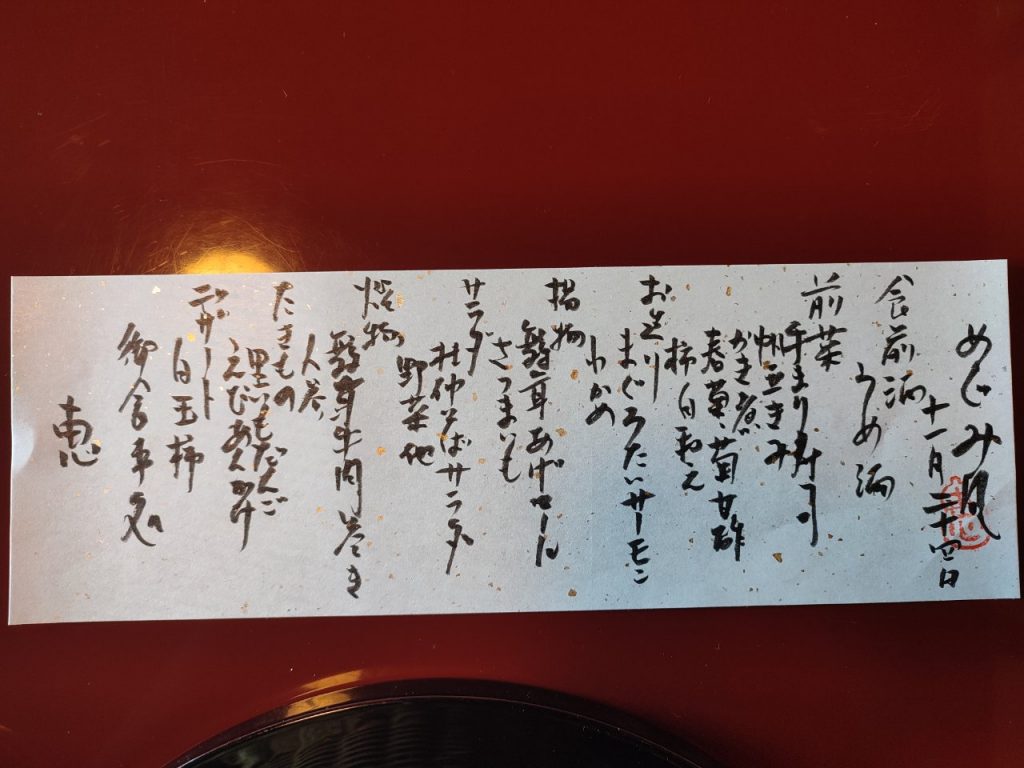 めぐみ膳
十一月二十四日
食前酒
うめ酒
前菜
手まり寿司
かき煮
春菊、菊甘酢
柿白和え
お造り
まぐろたいサーモン
わかめ
揚物
あげロール
さつまいも
サラダ
杜仲そばサラダ
野菜他
焼物
牛肉巻き
人参
たきもの
里いもだんご
えびあんかけ
デザート
白玉柿
御食事処
恵